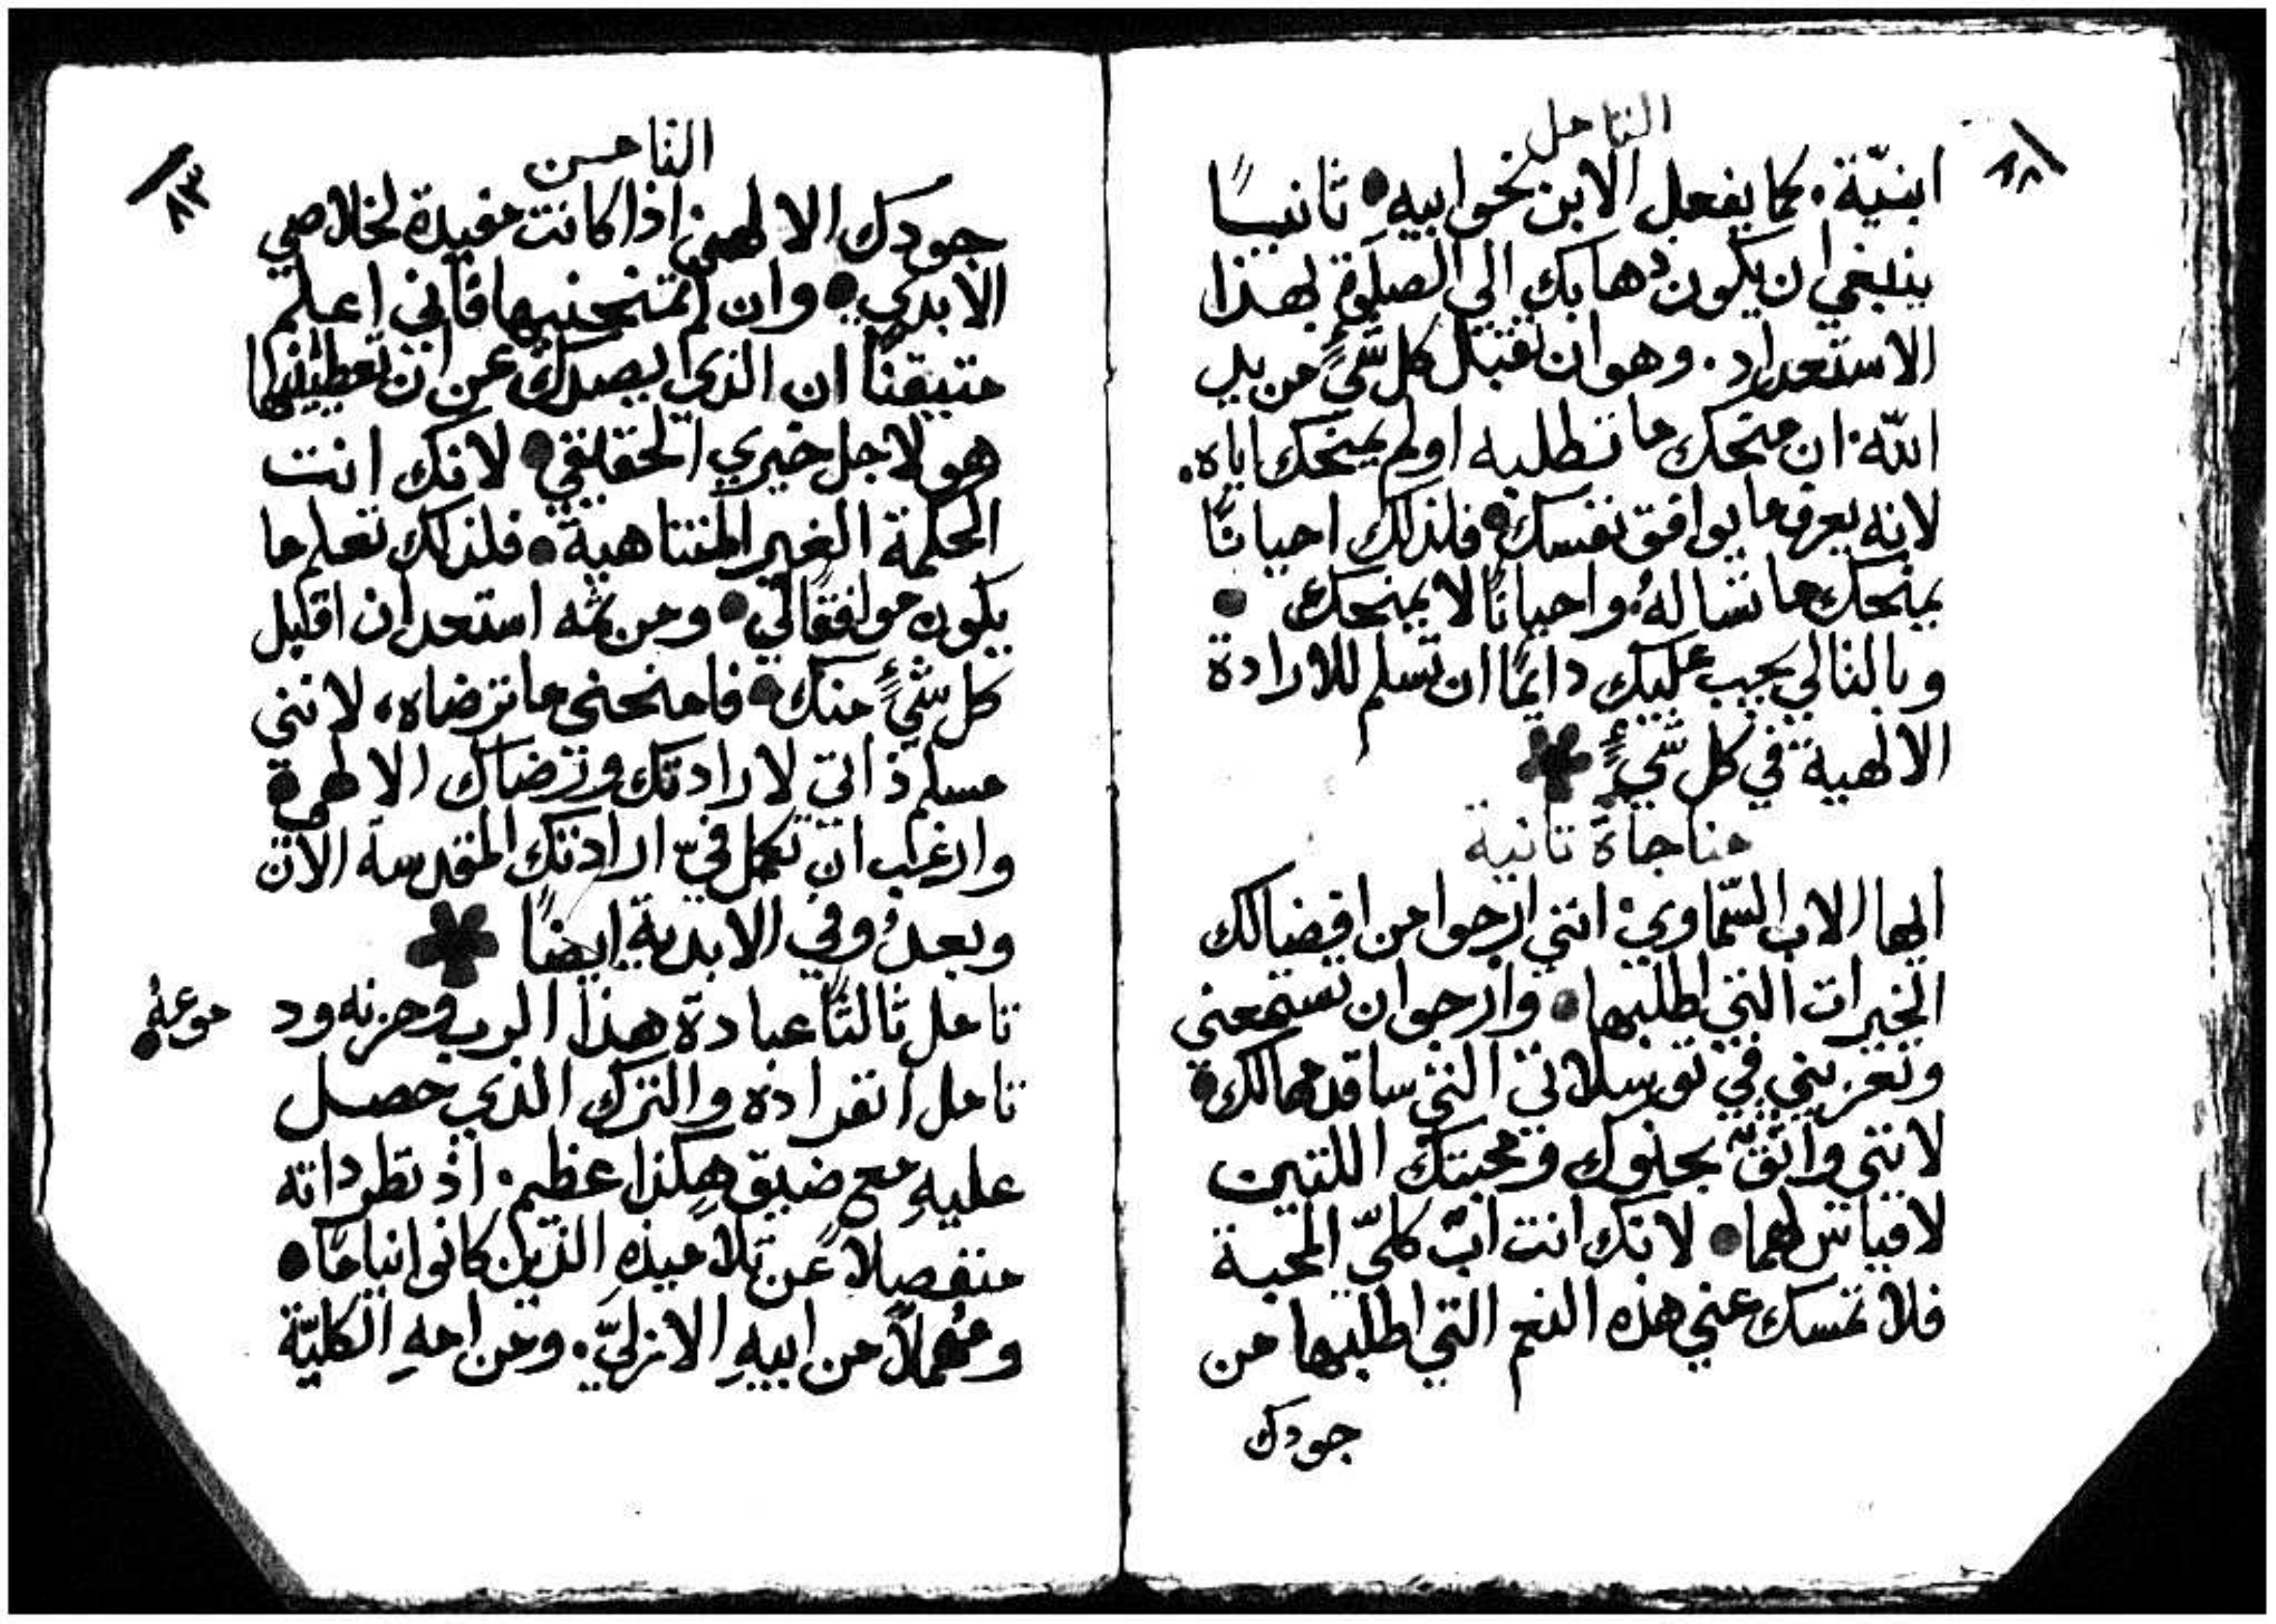 التاحل
ابنيّة. كما يفعل الابن نحو ابيه • ثانيًا
ينبغي ان يكون دهابك الى الصلوة بهذا
الاستعداد. وهو ان تقبل كل شيءٍ من يد
الله. ان منحك ما تطلبه او لم يمنحك اياه.
لانه يعرف ما يوافق نفسك • فلذلك احيانًا
يمنحك ما تساله. واحيانًا لا يمنحك •
وبالتالي يجب عليك دايمًا ان تسلم للارادة
الالهية في كل شيءٍ
مناجاة تانية
ايها الاب السّماوي. انني ارجوا من افضالك
الخيرات التي اطلبها • وارجوا ان تستمعني
وتعزيني في توسلاتي التي ساقدمها لك •
لانني واثقٌ بحنوك ومحبتك اللتين
لا قياس لهما • لانك انت ابٌ كليّ المحبة
فلا تمسك عني هذه النعم التي اطلبها من
جودك
٨٣
التاحسن
جودك الالهي. اذا كانت مفيدة لخلاصي
الابدي • وان لم تمنحنيها فاني اعلم
متيقنًا ان الذي يصدك عن ان تعطينيها
هو لاجل خيري الحقيقي • لانك انت
الحكمة الغير المتناهية • فلذلك تعلم ما
يكون موافقًا لي • ومن ثمه استعد ان اقبل
كل شيءٍ منك • فامنحني ما ترضاه، لانني
مسلم ذاتي لارادتك ورضاك الالهي •
وارغب ان تكمل فيّ ارادتك المقدسة الان
وبعدُ وفي الابدية ايضًا
تامل ثالثًا عبادة هذا الرب وحزنه ود
موعهُ •
تامل انفراده والترك الذي حصل
عليهِ مع ضيق هكذا عظيم. اذ نظر داته
منفصلاً عن تلاميذهِ الذين كانوا نيامًا •
ومُهملاً من ابيهِ الازليّ. ومن امهِ الكليّة